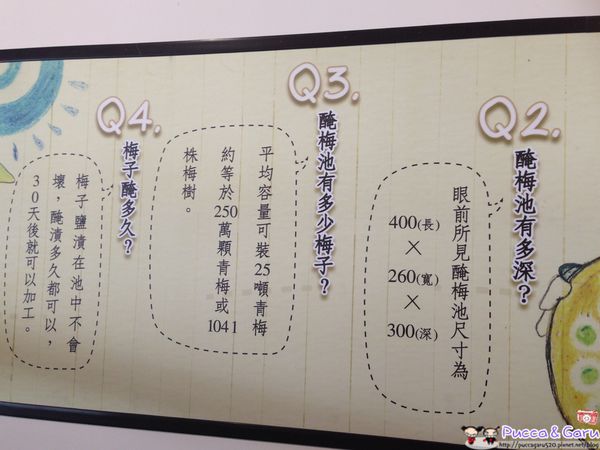 Q2.
醃梅池有多深？
眼前所見醃梅池尺寸為
400(長)
×
260(寬)
×
300(深)
Q3.
醃梅池有多少梅子？
平均容量可裝25噸青梅
約等於250萬顆青梅或1041
株梅樹。
Q4.
梅子醃多久？
梅子鹽漬在池中不會
壞，醃漬多久都可以，
30天後就可以加工。
Pucca & Garu
http://puccagaru520.pixnet.net/blog